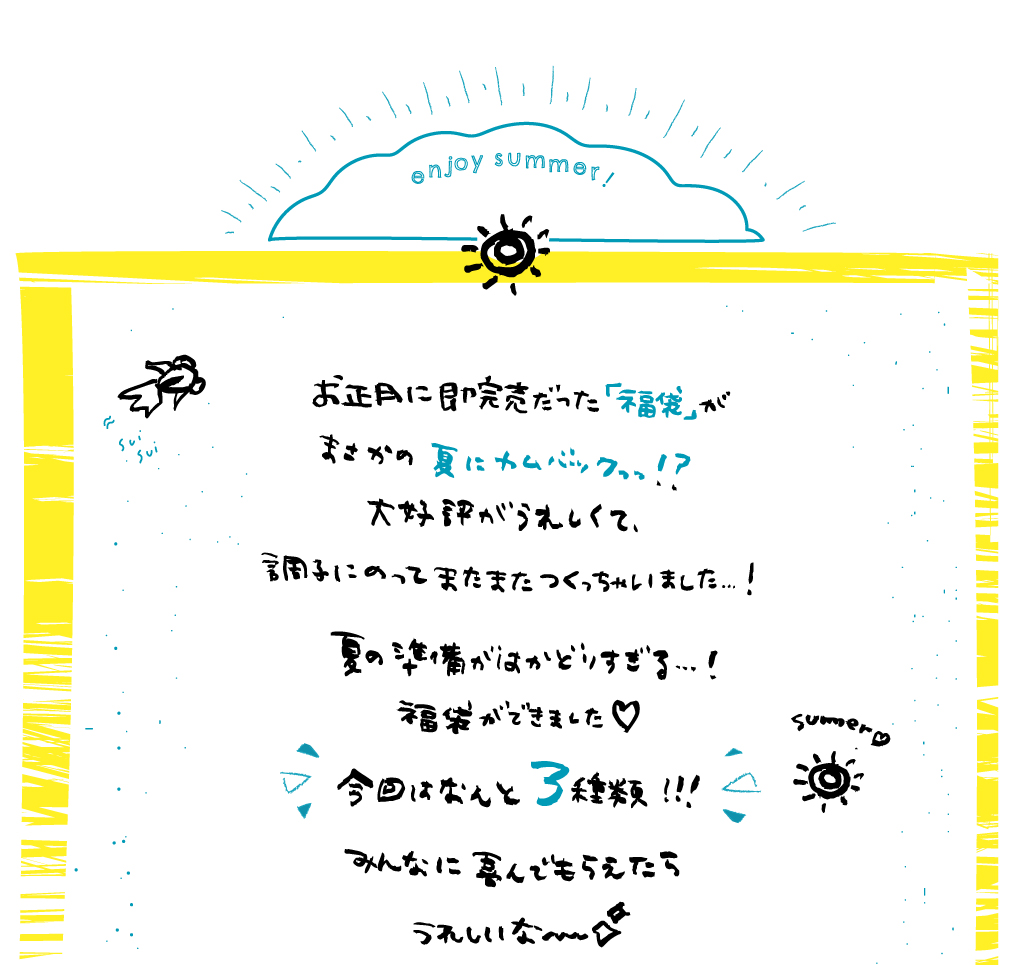 enjoy summer!
sui
sui
お正月に即完売だった「福袋」が
まさかの 夏にカムバックっっ!?
大好評がうれしくて、
調子にのってまたまたつくっちゃいました…!
夏の準備がはかどりすぎる…!
福袋ができました♡
summer♡
今回はなんと3種類!!!
みんなに喜んでもらえたら
うれしいな〜〜